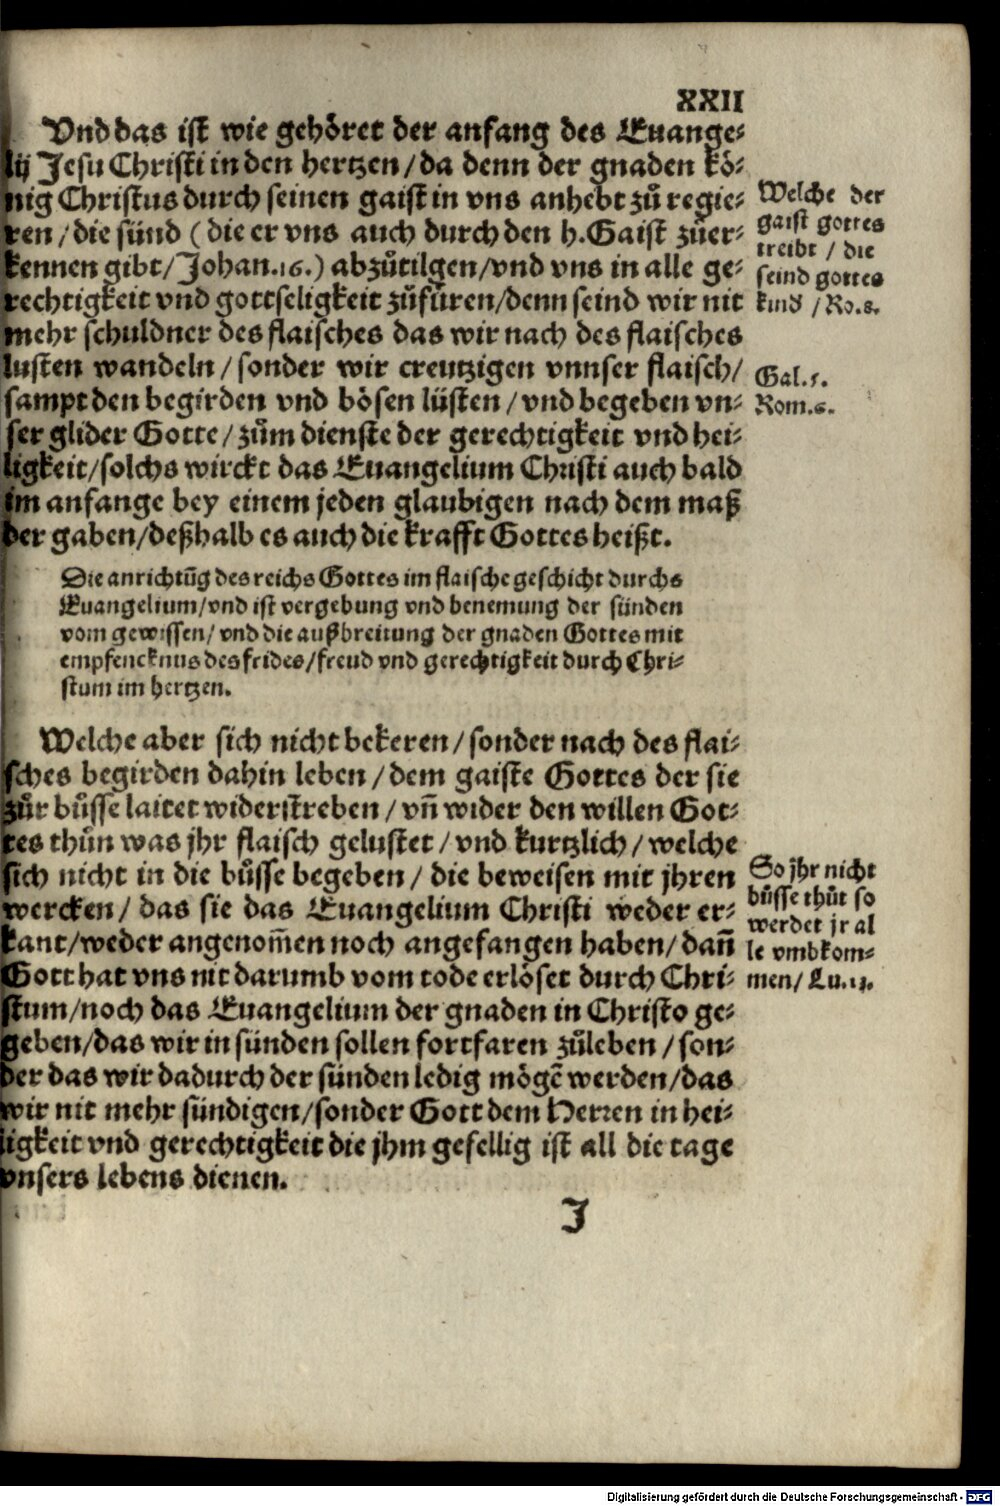 XXII
Vnd das ist wie gehöret der anfang des Euange-
lij Jesu Christi in den hertzen/da denn der gnaden kö-
nig Christus durch seinen gaist in vns anhebt zů regie-
ren/die sünd (die er vns auch durch den h. Gaist zůer-
kennen gibt/Johan.16.) abzůtilgen/vnd vns in alle ge-
rechtigkeit vnd gottseligkeit zůfüren/denn seind wir nit
mehr schuldner des flaisches das wir nach des flaisches
lusten wandeln/sonder wir creutzigen vnnser flaisch/
sampt den begirden vnd bösen lüsten/vnd begeben vn-
ser glider Gotte/zům dienste der gerechtigkeit vnd hei-
ligkeit/solchs wirckt das Euangelium Christi auch bald
im anfange bey einem jeden glaubigen nach dem maß
der gaben/deßhalb es auch die krafft Gottes heißt.
Welche der
gaist gottes
treibt / die
seind gottes
kind / Ro.8.
Gal.5.
Rom.6.
Die anrichtũg des reichs Gottes im flaische geschicht durchs
Euangelium/vnd ist vergebung vnd benemung der sünden
vom gewissen/vnd die außbreitung der gnaden Gottes mit
empfencknus des frides/freud vnd gerechtigkeit durch Chri-
stum im hertzen.
Welche aber sich nicht bekeren/sonder nach des flai-
sches begirden dahin leben/dem gaiste Gottes der sie
zůr bůsse laitet widerstreben/vñ wider den willen Got-
tes thůn was jhr flaisch gelustet/vnd kurtzlich/welche
sich nicht in die bůsse begeben/die beweisen mit jhren
wercken/das sie das Euangelium Christi weder er-
kant/weder angenom̃en noch angefangen haben/dañ
Gott hat vns nit darumb vom tode erlöset durch Chri-
stum/noch das Euangelium der gnaden in Christo ge-
geben/das wir in sünden sollen fortfaren zůleben/son-
der das wir dadurch der sünden ledig mögẽ werden/das
wir nit mehr sündigen/sonder Gott dem Herren in hei-
ligkeit vnd gerechtigkeit die jhm gefellig ist all die tage
vnsers lebens dienen.
So jhr nicht
bůsse thůt so
werdet jr al
le vmbkom-
men/ Lu.13.
J
Digitalisierung gefördert durch die Deutsche Forschungsgemeinschaft - DFG